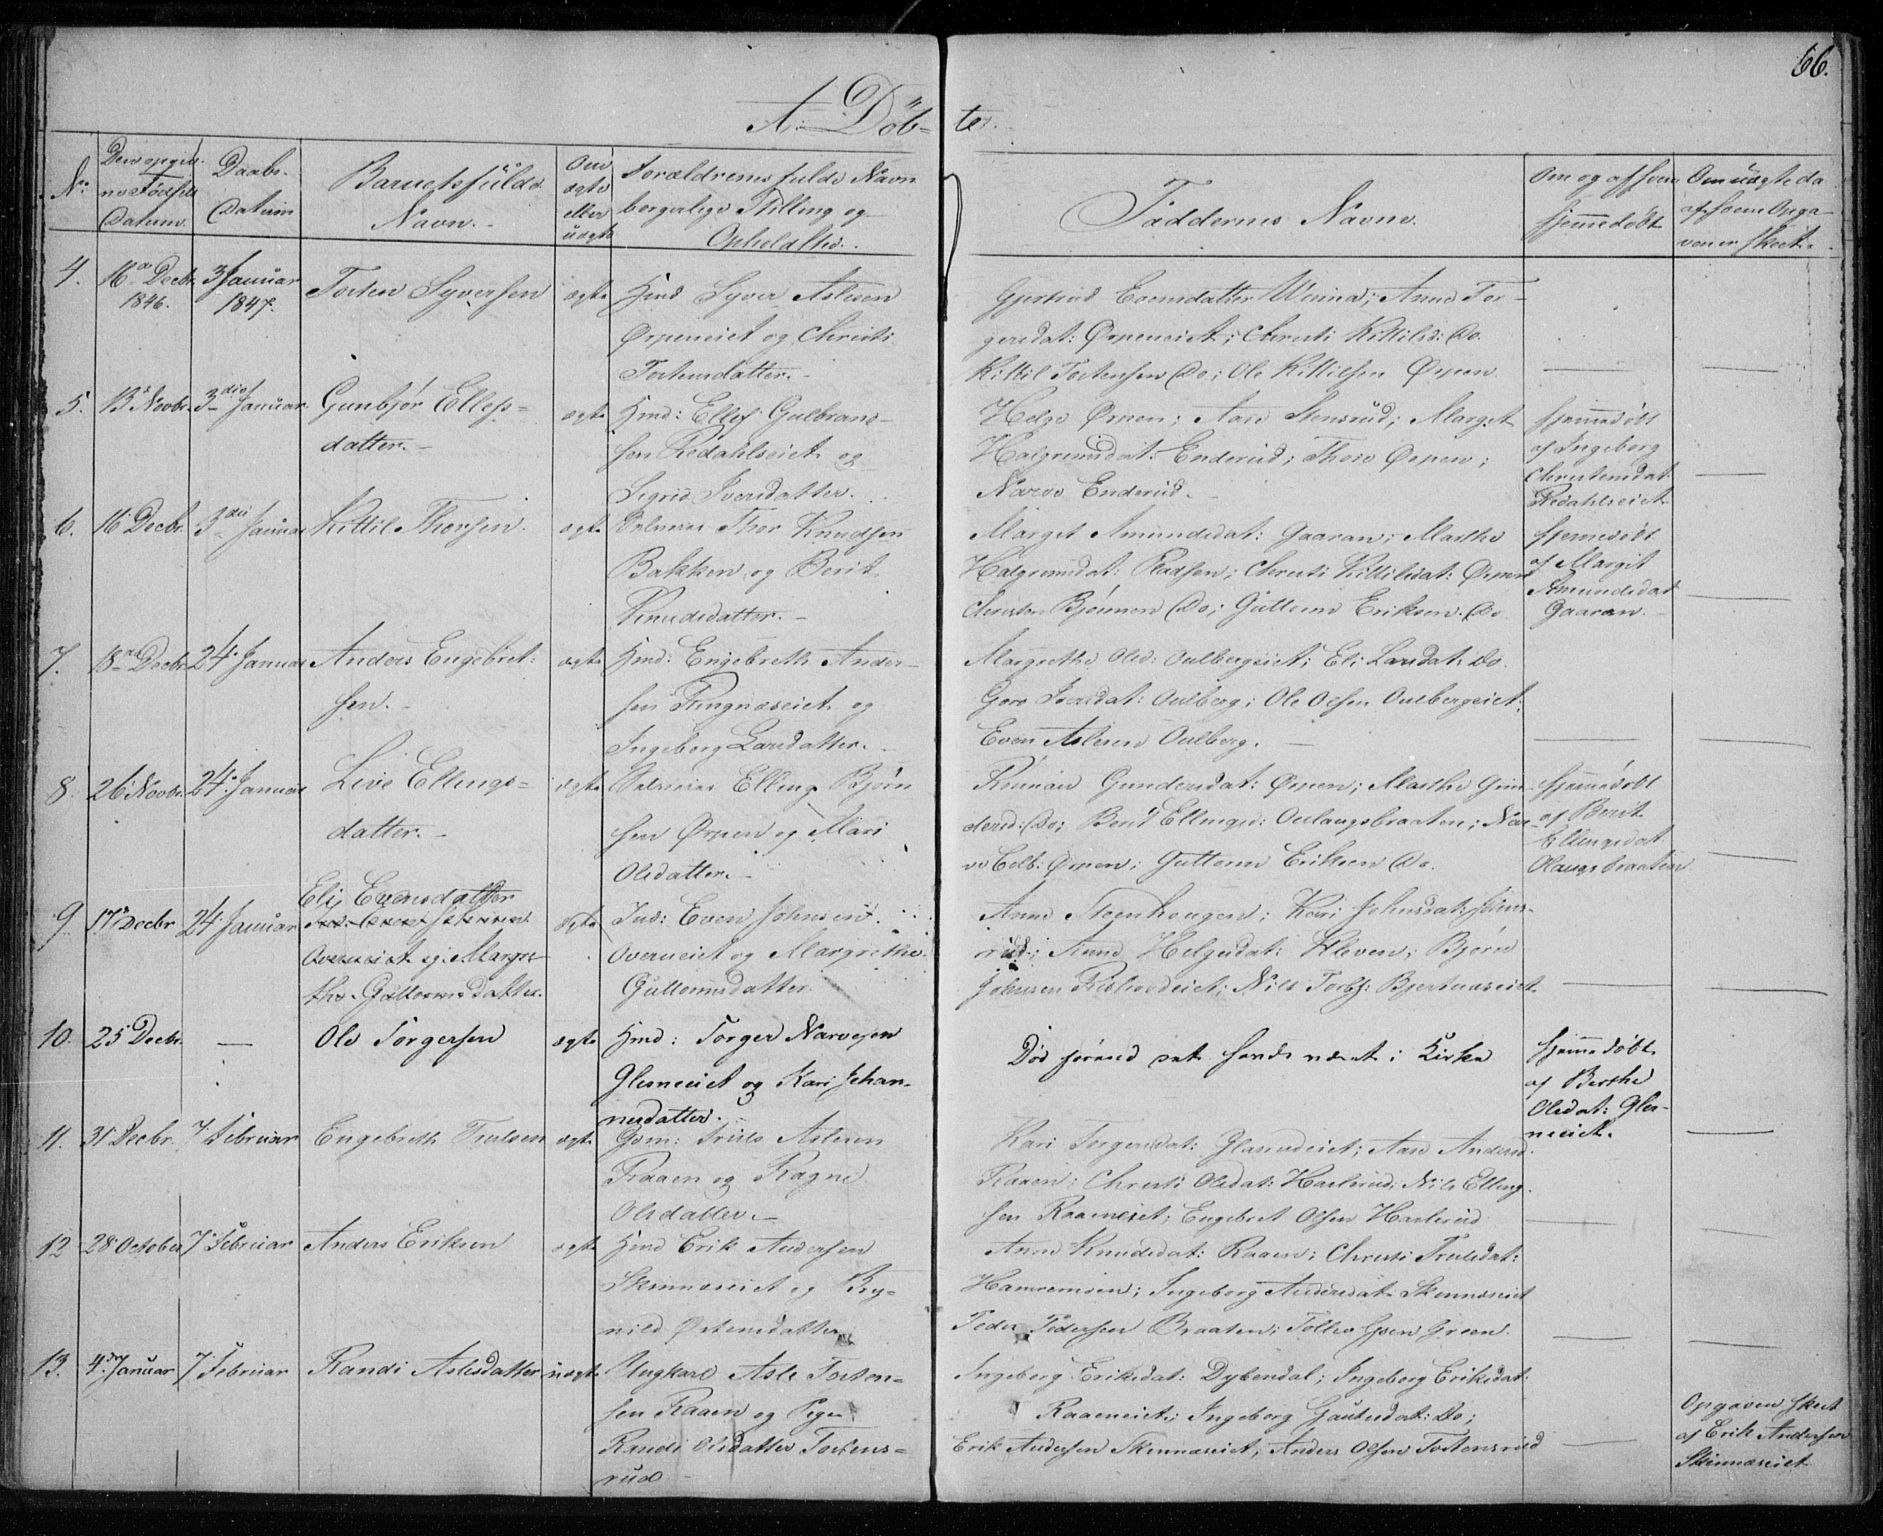 66.
A. Döb-
te.
No
Den opgiv-
ne Fødsels
Datum.
Daabs-
Datum
Barnets fulde
Navn.
Om
ægte
eller
uægte
Forældrenes fulde Navn
borgerlige Stilling og
Opholdsted.
Faddernes Navne.
Om og af hvem
hjemmedøbt
Om uægte da
af hvem Opga-
ven er skeet.
4.
16de Decbr.
1846.
3 Januar
1847.
Torsten Syversen
ægte
Hmd Syver Aslesen
Ørpeneiet og Christi
Torstensdatter.
Anne Tor-
gersdat: Ørpeneiet; Christi Kittilsd: Do.
Kittil Torstensen Do; Ole Kittilsen Ørpen
5.
13 Novbr.
3die Januar
Gunbjør Ellefs-
datter.
ægte
Hmd: Ellef Gulbrand-
sen Redahlseiet og
Sigrid Iversdatter.
Helge Ørpen; Aase Stensrud; Marget
Halgrimsdat: Enderud; Thore Ørpen;
Narve Enderud.
hjemmedøbt
af Ingeborg
Christensdat
Redahlseiet
6.
16 Decbr.
3die Januar
Kittil Thorsen.
ægte
Thor Knudsen
Bakken og Berit
Knudsdatter.
Marget Amundsdat: Gaaran; Marthe
Halgrimsdat: Christi Kittilsdat: Ørpen
Christen Bjønnen Do; Guttorm Eriksen Do
hjemmedøbt
af Margit
Amundsdat
Gaaran.
7.
18de Decbr.
24. Januar
Anders Engebret-
sen.
ægte
Hmd: Engebreth Ander-
sen Ringnæseiet og
Ingeborg Larsdatter.
Margrethe Olsd: Oulbergeiet; Eli Larsdat: Do.
Goro Iversdat: Oulberg; Ole Olsen Oulbergeiet;
Even Aslesen Oulberg.
8.
26 Novbr.
24. Januar
Live Ellings-
datter.
ægte
Elling Bjørn
sen Ørpen og Mari
Olsdatter.
Gundersdat: Ørpen; Marthe Gun-
dersd: Do; Berit Ellingsd: Oulaugsbraaten; Nar-
ve Ørpen; Guttorm Eriksen Do.
hjemmedøbt
af Berit
Ellingsdat
Olaugsbraaten
9.
17de Decbr
24. Januar
Eli Evensdatter
Ind: Even Johnsen
Overneiet og Margre-
the Guttormsdatter.
ægte
Ind: Even Johnsen
Overneiet og Margrethe
Guttormsdatter
Anne Steenhougen; Kari Johnsdat:
rud; Anne Helgesdat: Kleven; Bjørn
Johnsen Nils
10.
25 Decbr.
—
Ole Torgersen
ægte
Hmd: Torger Narvesen
Glesneeiet og Kari Johan-
nesdatter.
Død førend det havde været i Kirke
hjemmedøbt
af Berthe
Olsdat: Gles-
neeiet.
11.
31 Decbr.
7. Februar
Engebreth Trulsen
ægte
Gom: Truls Aslesen
Raaen og Ragne
Olsdatter.
Kari Torgersdat: Aase Andersd.
Raaen; Christi Olsdat: Haslerud; Nils Elling-
sen Raaeneiet; Engebret Olsen Haslerud
12
28 October
7. Februar
Anders Eriksen
ægte
Hmd Erik Andersen
Skinnæseiet og Bry-
nild Østensdatter
Anne Knudsdat: Raaen; Christi Trulsdat:
Hamremoen; Ingeborg Andersdat: Skinnæseiet
Peder Pedersen Braaten; Green.
13.
4de Januar
7 Februar
Randi Aslesdatter
uægte
Ungkarl Asle Torsten-
sen Raaen og Pige
Randi Olsdatter Torstens-
rud
Ingeborg Eriksdat: Dybendal; Ingeborg Eriksdat:
Raaeneiet; Ingeborg Do;
Erik Andersen Skinnæseiet; Anders Olsen Torstensrud
Opgaven skeet
af Erik Andersen
Skinnæseiet